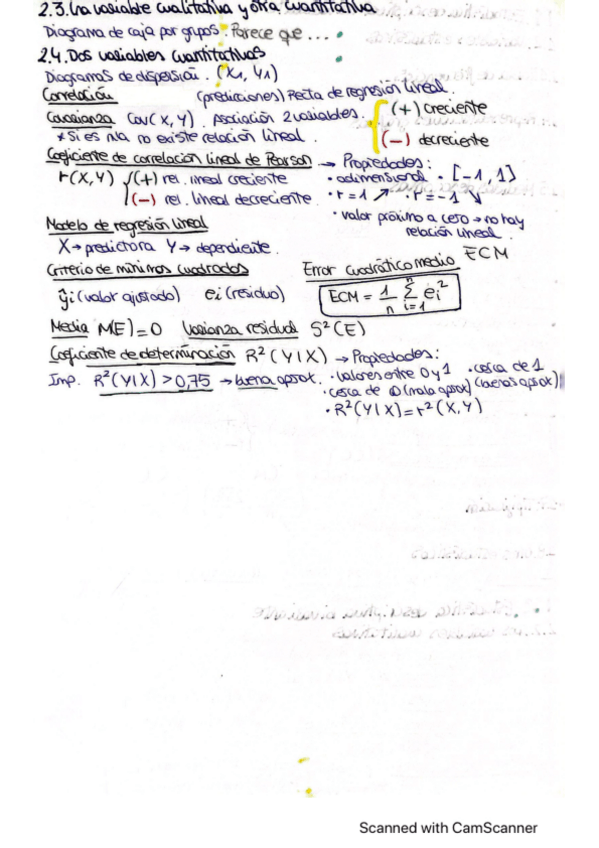 2.3. Una variable cualitativa y otra cuantitativa
Diagrama de caja por grupos. Parece que ...
2.4. Dos variables cuantitativas
Diagramas de dispersión. (X1, Y1)
Correlación (predicciones) Recta de regresión lineal.
Covarianza Cov(X,Y). Asociación 2 variables. (+) creciente
* Si es nula no existe relación lineal. (-) decreciente
Coeficiente de correlación lineal de Pearson → Propiedades:
r(X,Y) (+) rel. lineal creciente · adimensional · [-1,1]
(-) rel. lineal decreciente. · r=1 ↗ · r=-1 ↘
· valor próximo a cero → no hay
relación lineal.
Modelo de regresión lineal
X → predictora Y → dependiente.
Criterio de mínimos cuadrados Error cuadrático medio ECM
ŷi (valor ajustado) ei (residuo) ECM = 1/n Σ i=1 n ei²
Media M(E)=0 Varianza residual S²(E)
Coeficiente de determinación R²(Y|X) → Propiedades:
Imp. R²(Y|X) > 0,75 → buena · valores entre 0 y 1 · cerca de 1
· cerca de 0 (malo
· R²(Y|X) = r²(X,Y)
Scanned with CamScanner